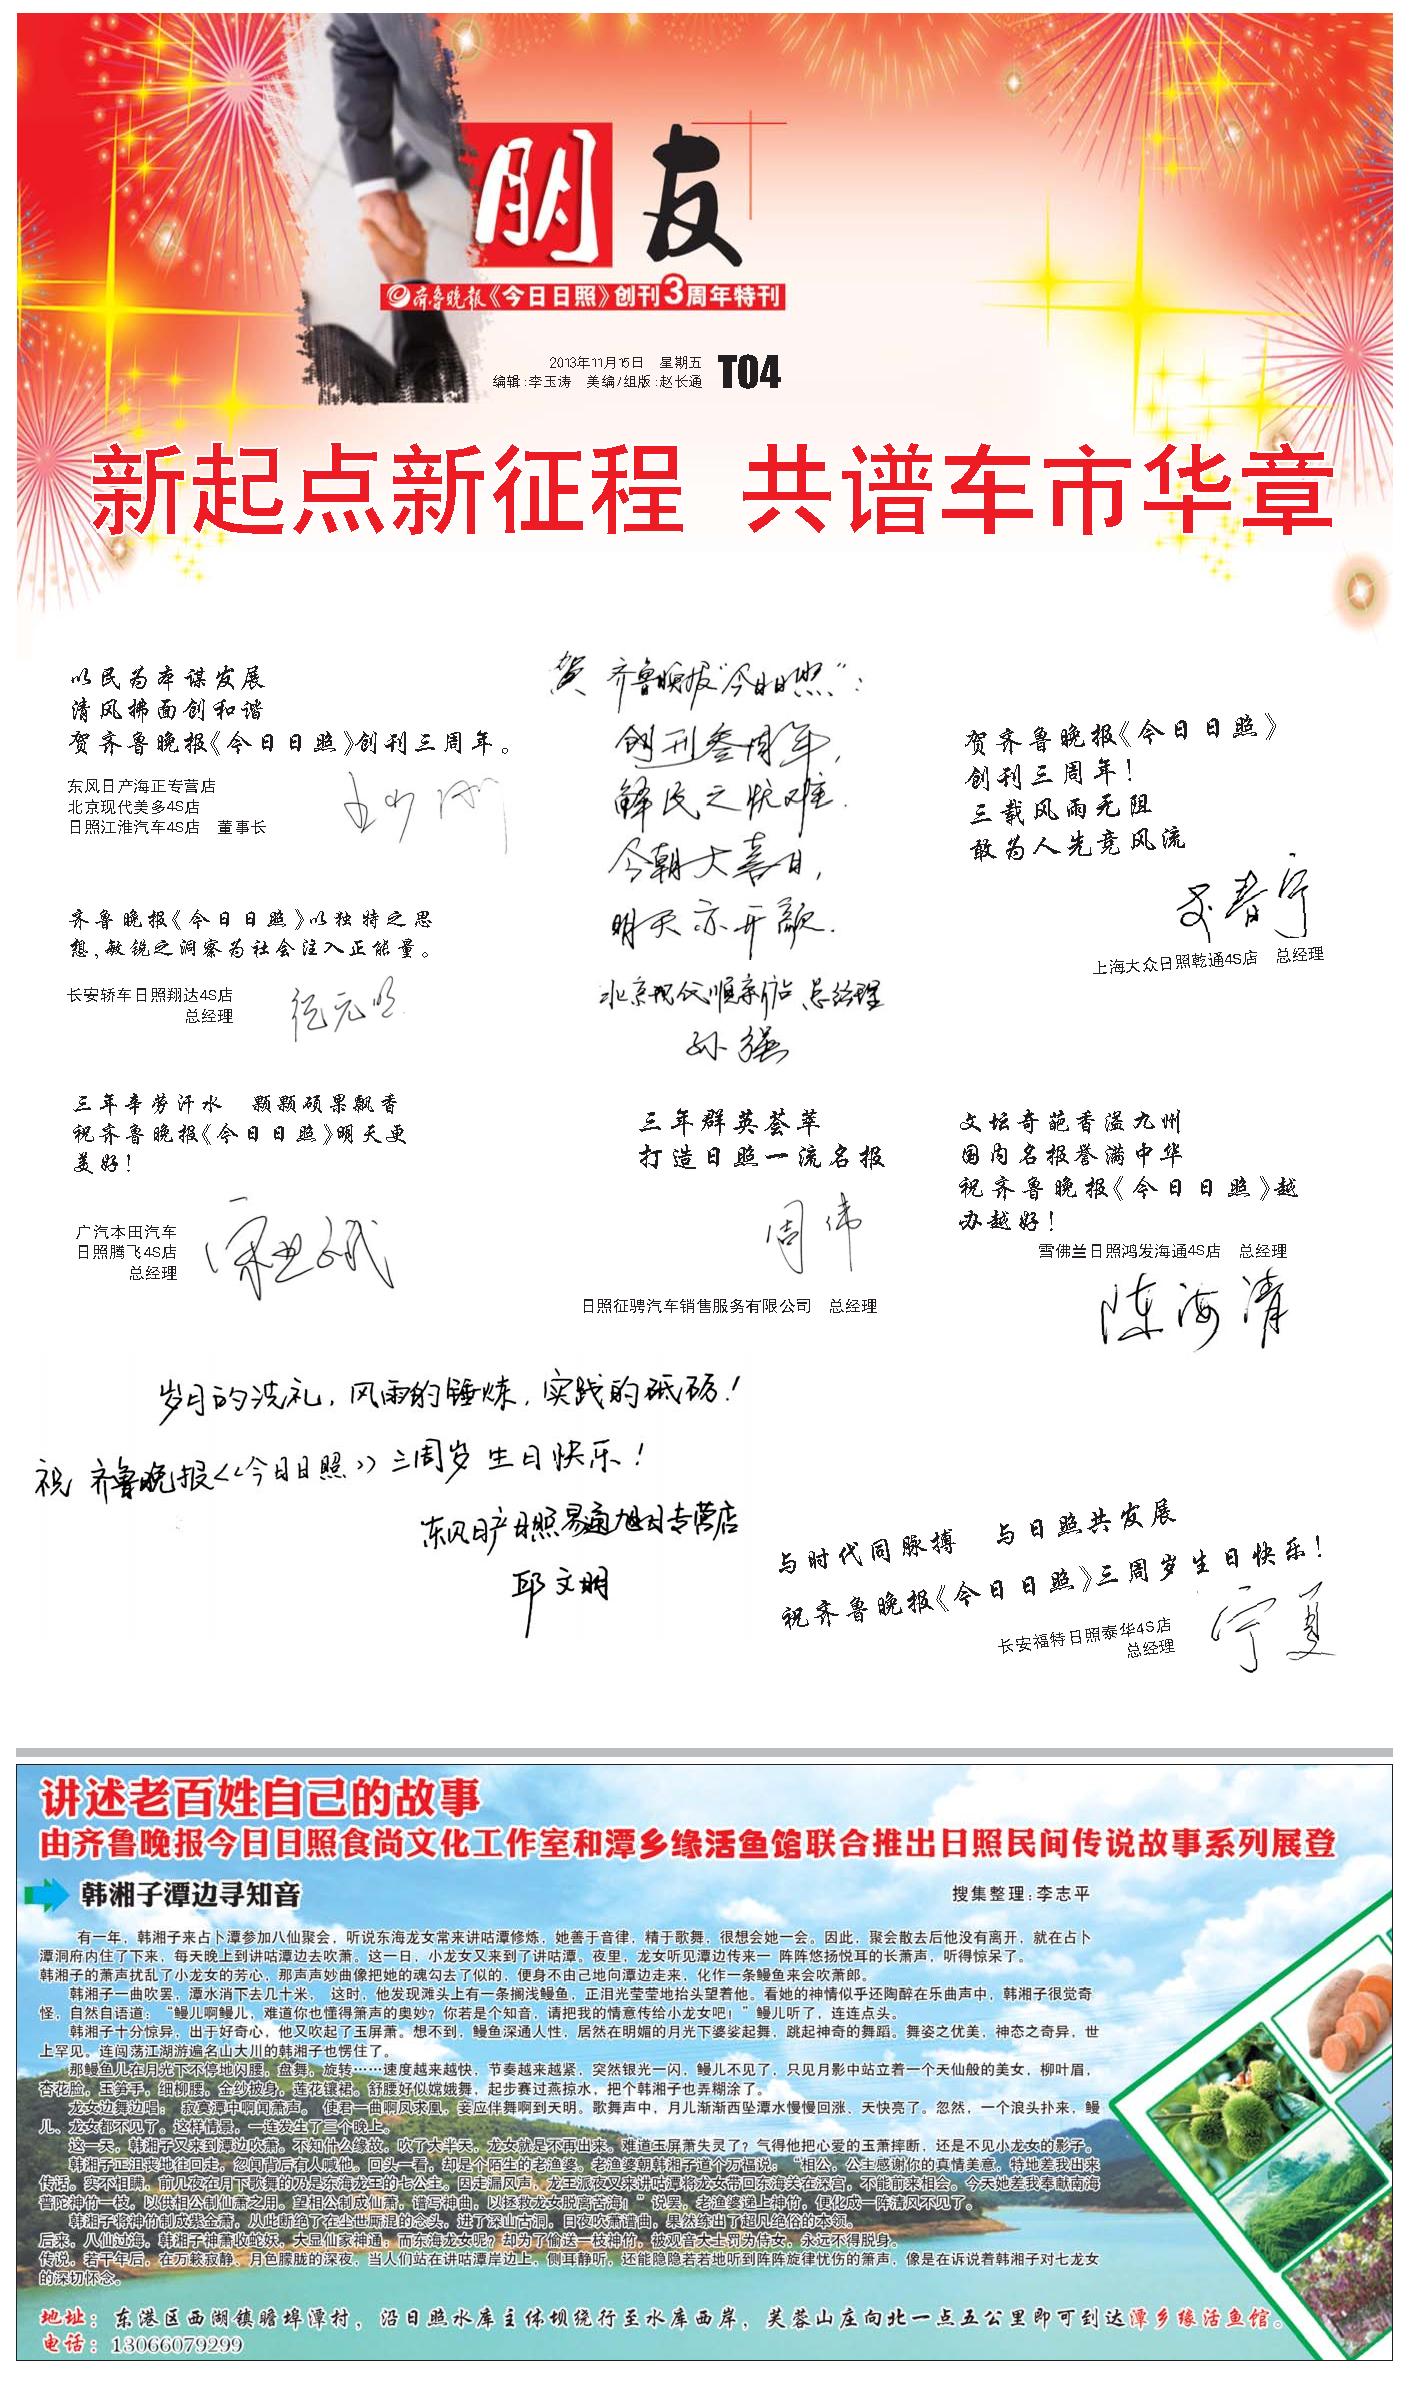 朋友
齐鲁晚报《今日日照》创刊3周年特刊
2013年11月15日 星期五
编辑:李玉涛 美编/组版:赵长通
T04
新起点新征程 共谱车市华章
以民为本谋发展
清风拂面创和谐
贺齐鲁晚报《今日日照》创刊三周年。
东风日产海正专营店
北京现代美多4S店
日照江淮汽车4S店 董事长
齐鲁晚报《今日日照》以独特之思
想,敏锐之洞察为社会注入正能量。
长安轿车日照翔达4S店
总经理
三年辛劳汗水 颗颗硕果飘香
祝齐鲁晚报《今日日照》明天更
美好!
广汽本田汽车
日照腾飞4S店
总经理
贺 齐鲁晚报“今日日照”:
创刊叁周年,
解民之忧难.
今朝大喜日,
明天亦开颜.
北京现代顺新店 总经理
孙强
三年群英荟萃
打造日照一流名报
周伟
日照征骋汽车销售服务有限公司 总经理
贺齐鲁晚报《今日日照》
创刊三周年!
三载风雨无阻
敢为人先竞风流
上海大众日照乾通4S店 总经理
文坛奇葩香溢九州
国内名报誉满中华
祝齐鲁晚报《今日日照》越
办越好!
雪佛兰日照鸿发海通4S店 总经理
陈海清
岁月的洗礼,风雨的锤炼,实践的砥砺!
祝 齐鲁晚报《今日日照》三周岁生日快乐!
东风日产日照易通旭日专营店
邱文明
与时代同脉搏 与日照共发展
祝齐鲁晚报《今日日照》三周岁生日快乐!
长安福特日照泰华4S店
总经理
宁夏
讲述老百姓自己的故事
由齐鲁晚报今日日照食尚文化工作室和潭乡缘活鱼馆联合推出日照民间传说故事系列展登
韩湘子潭边寻知音
搜集整理:李志平
有一年，韩湘子来占卜潭参加八仙聚会，听说东海龙女常来讲咕潭修炼，她善于音律，精于歌舞，很想会她一会。因此，聚会散去后他没有离开，就在占卜
潭洞府内住了下来，每天晚上到讲咕潭边去吹萧。这一日，小龙女又来到了讲咕潭。夜里，龙女听见潭边传来一 阵阵悠扬悦耳的长萧声，听得惊呆了。
韩湘子的萧声扰乱了小龙女的芳心，那声声妙曲像把她的魂勾去了似的，便身不由己地向潭边走来，化作一条鳗鱼来会吹萧郎。
韩湘子一曲吹罢，潭水消下去几十米， 这时，他发现滩头上有一条搁浅鳗鱼，正泪光莹莹地抬头望着他。看她的神情似乎还陶醉在乐曲声中，韩湘子很觉奇
怪，自然自语道：“鳗儿啊鳗儿，难道你也懂得箫声的奥妙？你若是个知音，请把我的情意传给小龙女吧！”鳗儿听了，连连点头。
韩湘子十分惊异，出于好奇心，他又吹起了玉屏萧。想不到，鳗鱼深通人性，居然在明媚的月光下婆娑起舞，跳起神奇的舞蹈。舞姿之优美，神态之奇异，世
上罕见。连闯荡江湖游遍名山大川的韩湘子也愣住了。
那鳗鱼儿在月光下不停地闪腰，盘舞，旋转……速度越来越快，节奏越来越紧，突然银光一闪，鳗儿不见了，只见月影中站立着一个天仙般的美女，柳叶眉，
杏花脸，玉笋手，细柳腰，金纱披身，莲花镶裙。舒腰好似嫦娥舞，起步赛过燕掠水，把个韩湘子也弄糊涂了。
龙女边舞边唱： 寂寞潭中啊闻萧声。 使君一曲啊凤求凰，妾应伴舞啊到天明。歌舞声中，月儿渐渐西坠潭水慢慢回涨、天快亮了。忽然，一个浪头扑来，鳗
儿、龙女都不见了。这样情景，一连发生了三个晚上。
这一天，韩湘子又来到潭边吹萧。不知什么缘故，吹了大半天，龙女就是不再出来。难道玉屏萧失灵了？气得他把心爱的玉萧摔断，还是不见小龙女的影子。
韩湘子正沮丧地往回走，忽闻背后有人喊他。回头一看，却是个陌生的老渔婆。老渔婆朝韩湘子道个万福说：“相公，公主感谢你的真情美意，特地差我出来
传话。实不相瞒，前几夜在月下歌舞的乃是东海龙王的七公主。因走漏风声，龙王派夜叉来讲咕潭将龙女带回东海关在深宫，不能前来相会。今天她差我奉献南海
普陀神竹一枝，以供相公制仙萧之用。望相公制成仙萧，谱写神曲，以拯救龙女脱离苦海！”说罢，老渔婆递上神竹，便化成一阵清风不见了。
韩湘子将神竹制成紫金萧，从此断绝了在尘世厮混的念头，进了深山古洞，日夜吹萧谱曲，果然练出了超凡绝俗的本领。
后来，八仙过海，韩湘子神萧收蛇妖，大显仙家神通，而东海龙女呢？却为了偷送一枝神竹，被观音大士罚为侍女，永远不得脱身。
传说，若干年后，在万籁寂静、月色朦胧的深夜，当人们站在讲咕潭岸边上，侧耳静听，还能隐隐若若地听到阵阵旋律忧伤的箫声，像是在诉说着韩湘子对七龙女
的深切怀念。
地址：东港区西湖镇瞻埠潭村，沿日照水库主体坝绕行至水库西岸，芙蓉山庄向北一点五公里即可到达潭乡缘活鱼馆。
电话：13066079299